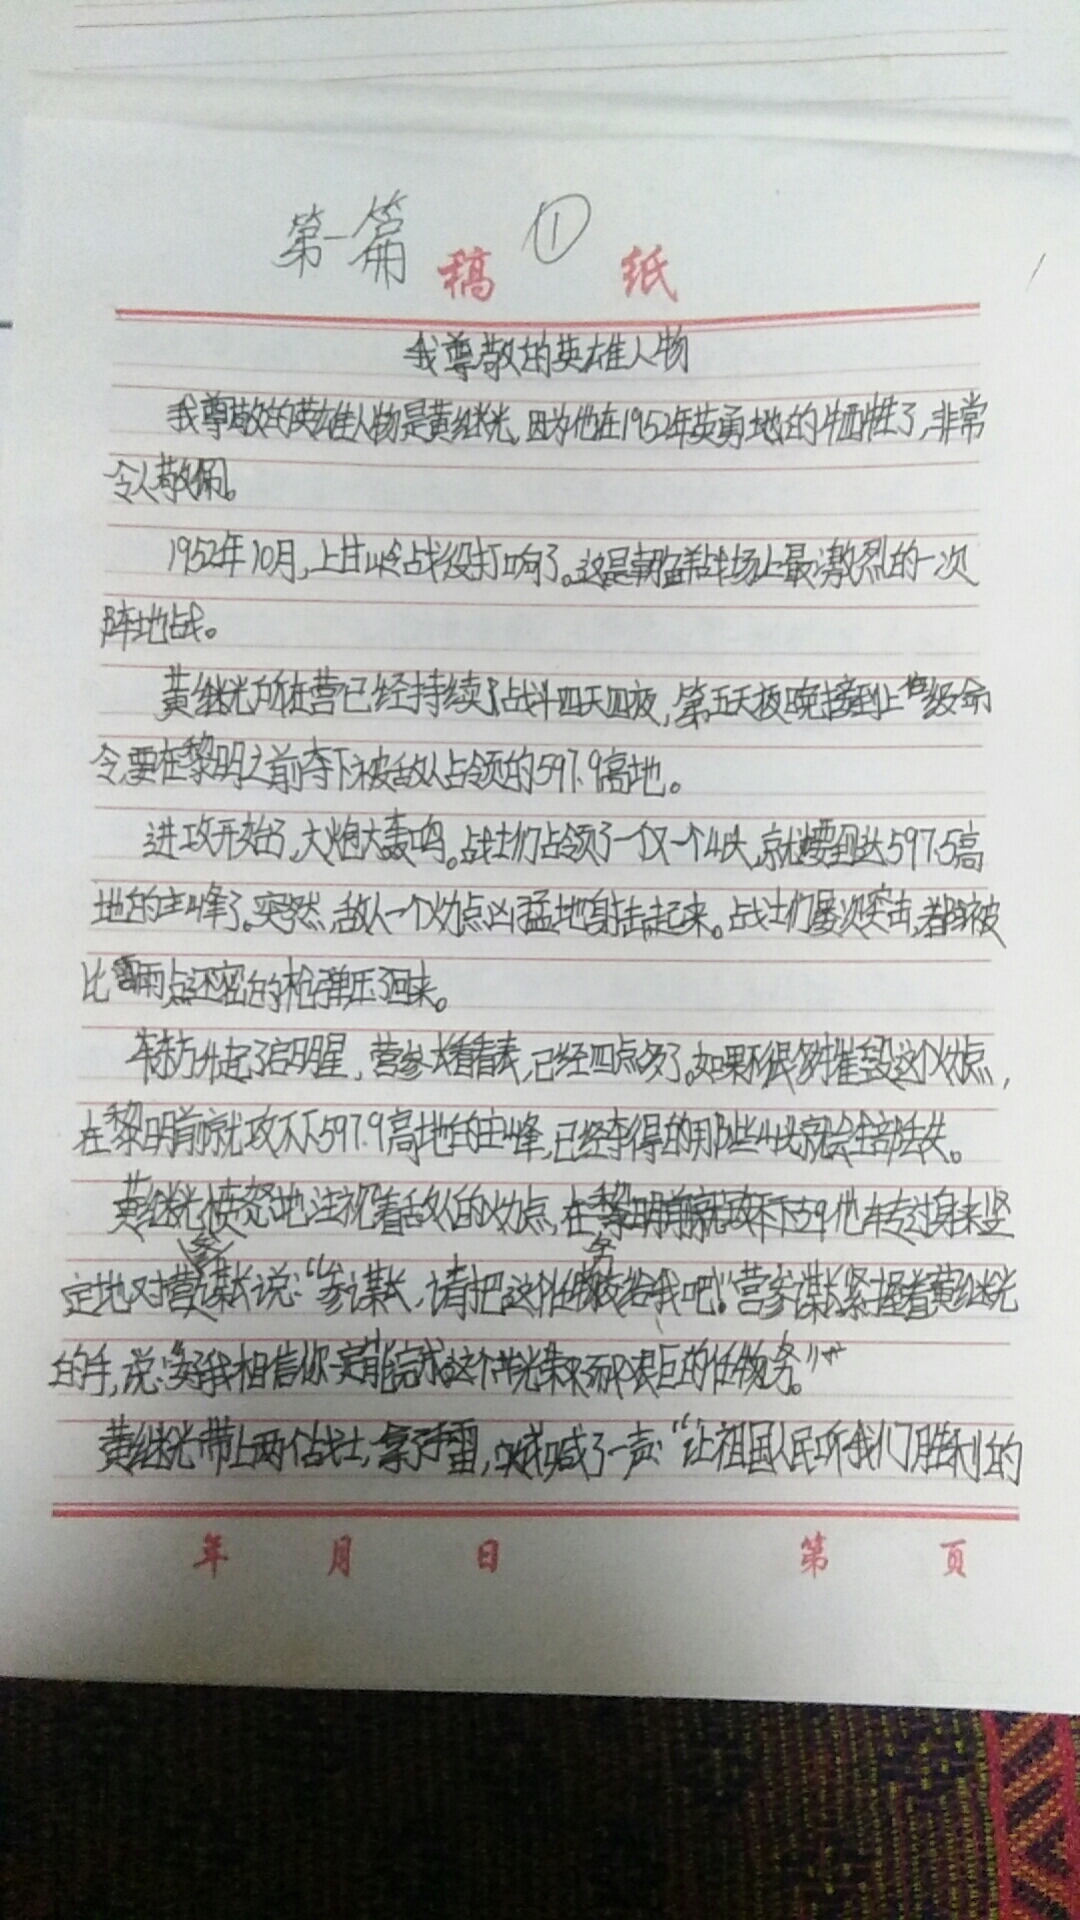 第一篇 ①
稿 纸
我尊敬的英雄人物
我尊敬的英雄人物是黄继光,因为他在1952年英勇地的牺牲了,非常
令人敬佩。
1952年10月,上甘岭战役打响了。这是朝鲜战场上最激烈的一次
阵地战。
黄继光所在营已经持续了战斗四天四夜,第五天夜晚接到上级命
令,要在黎明之前夺下被敌人占领的597.9高地。
进攻开始了,大炮大轰鸣。战士们占领了一个又一个山头,就要到达597.5高
地的主峰了。突然,敌人一个火力点凶猛地射击起来。战士们屡次突击,都被
比雨点还密的枪弹压了回来。
东方升起了启明星,营参长看看表,已经四点多了。如果不很多摧毁这个火力点,
在黎明前就攻不下597.9高地的主峰,已经夺得的那些山头就会全部丢失。
黄继光愤怒地注视着敌人的火力点,他转过身来坚
定地对营参谋长说:“参谋长,请把这个任务交给我吧!”营参谋长紧握着黄继光
的手,说:“好我相信你一定能完成这个光荣而艰巨的任务。”
黄继光带上两个战士,拿了手雷,喊了一声:“让祖国人民听我们胜利的
年 月 日 第 页